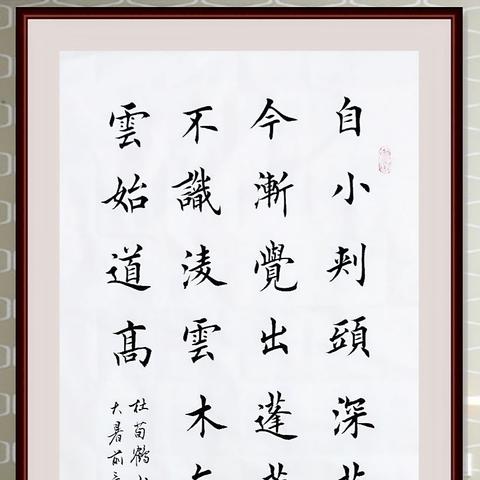 自小刾頭深
今漸覺出蓬
不識淩雲木
雲始道髙
杜荀鶴
大暑前